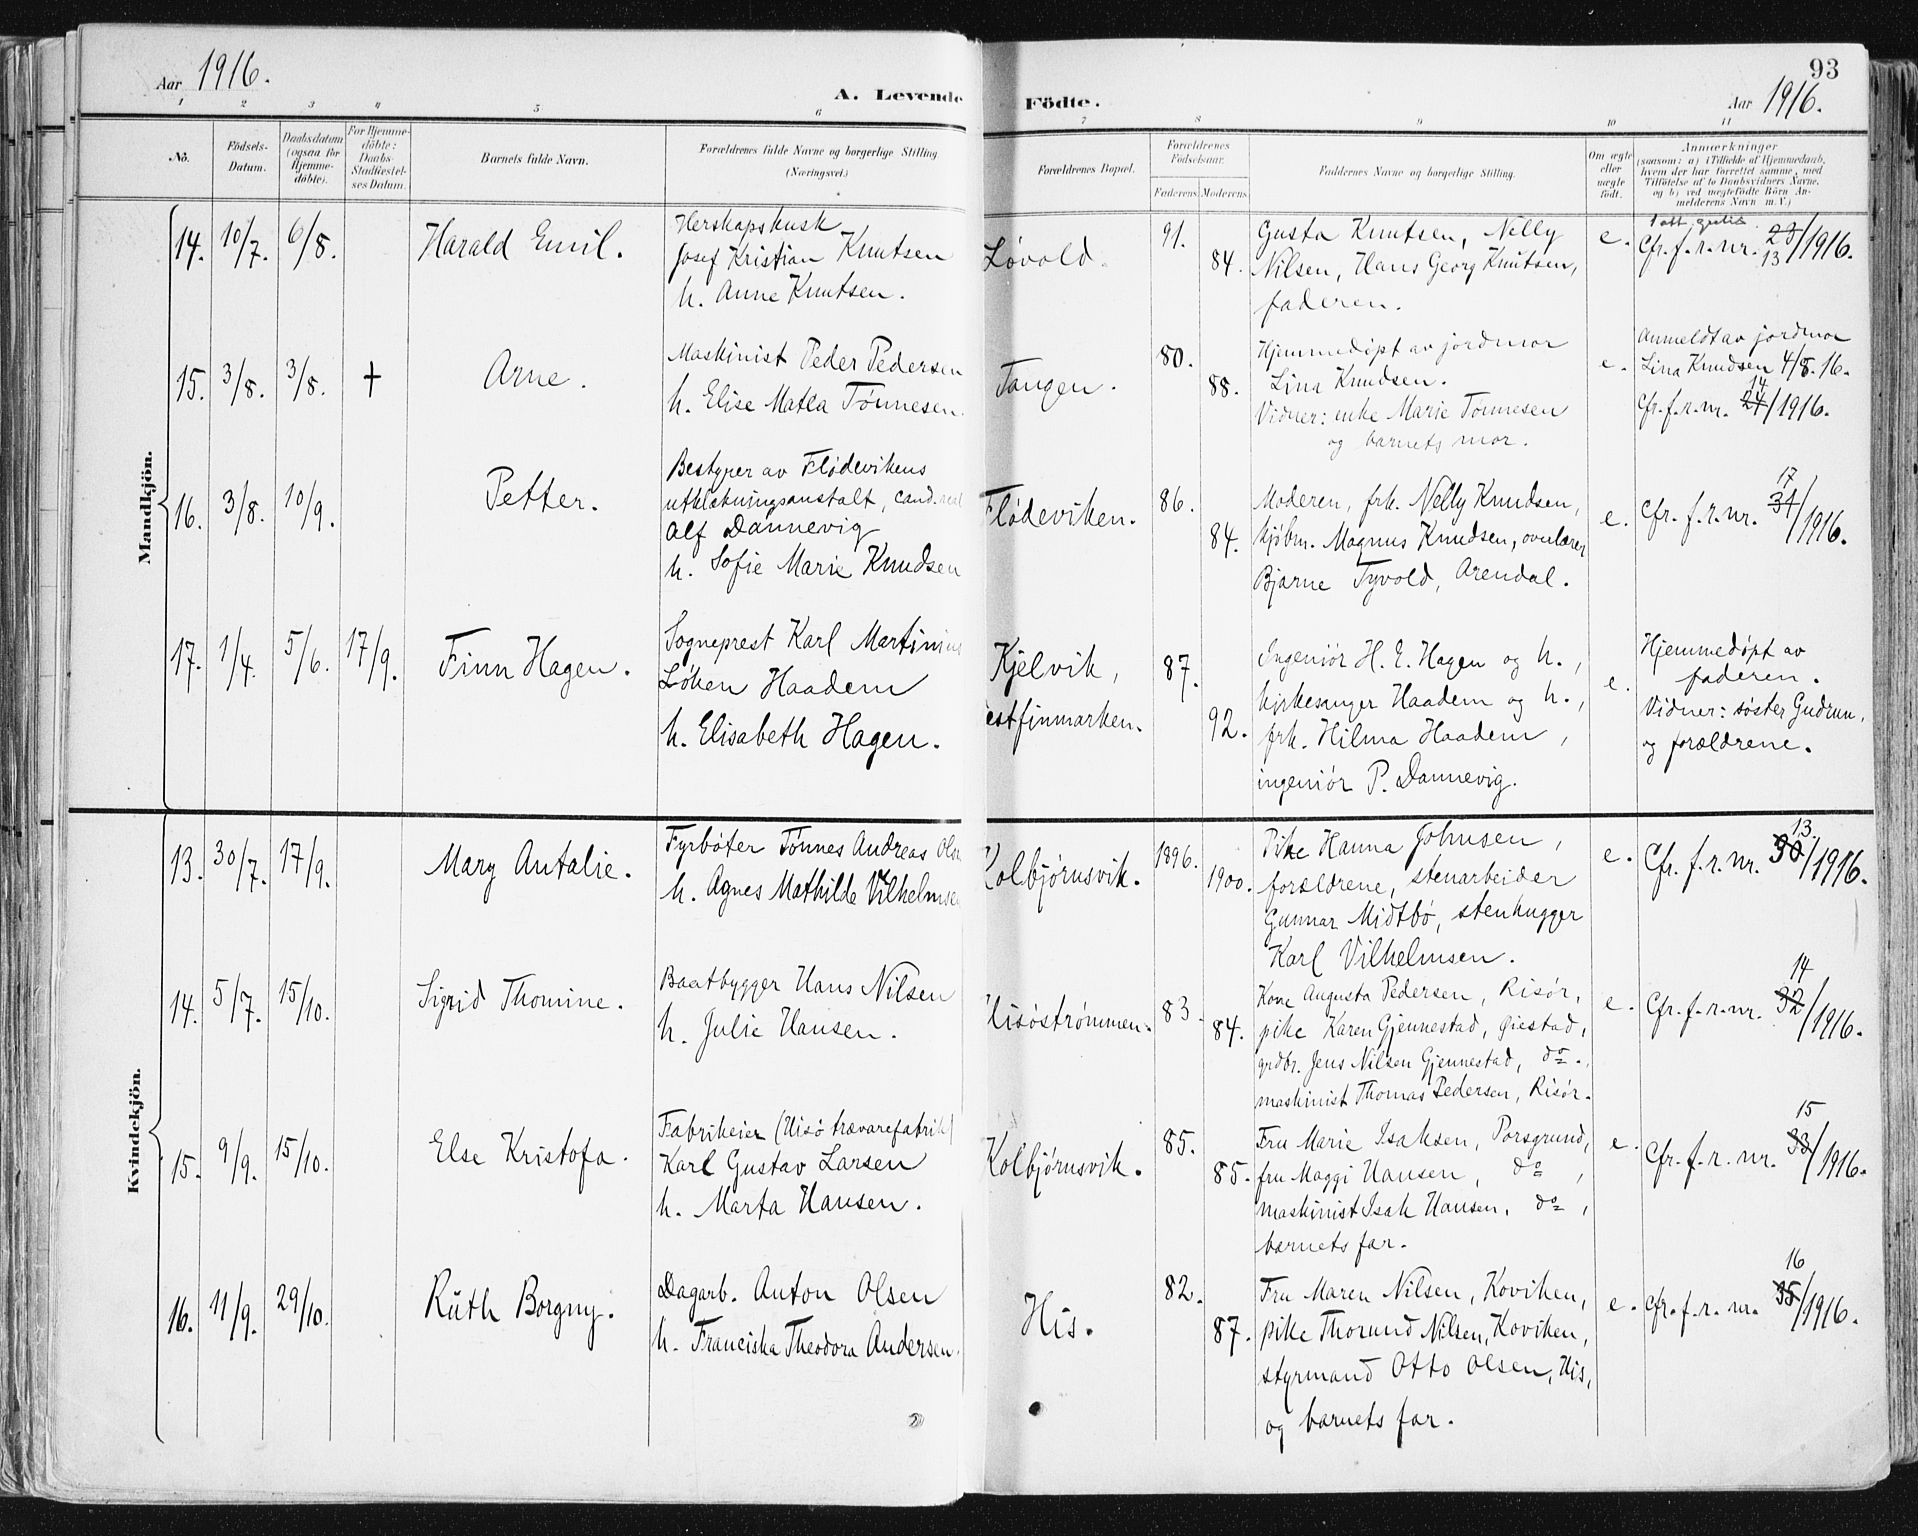 Aar 1916.
A. Levende Födte.
93
Aar 1916.
1 2 3 4 5 6 7 8 9 10 11
No.
Födsels-
Datum.
Daabsdatum
(ogsaa for
Hjemme-
döbte).
For Hjemme-
döbte:
Daabs-
Stadfæstel-
ses Datum.
Barnets fulde Navn.
Forældrenes fulde Navne og borgerlige Stilling
(Næringsvei.)
Forældrenes Bopæl.
Forældrenes
Födselsaar.
Faderens Moderens
Faddernes Navne og borgerlige Stilling.
Om ægte
eller
uægte
födt.
Anmærkninger
(saasom: a) i Tilfælde af Hjemmedaab,
hvem der har forrettet samme, med
Tilföielse af to Daabsvidners Navne,
og b) ved uægtefödte Börn An-
melderens Navn m. V.)
Mandkjön.
14. 10/7. 6/8.
Harald Emil.
Herskapskusk
Josef Kristian Knutsen
h. Anne Knutsen.
Løvold.
91.
84.
Gusta Knutsen, Nelly
Nilsen, Hans Georg Knutsen,
faderen.
e.
Cfr. f. r. nr. 23/1916.
13
15. 3/8. 3/8. +
Arne.
Maskinist Peder Pedersen
h. Elise Matea Tønnesen.
Tangen.
80.
88.
Hjemmedøpt av jordmor
Lina Knudsen.
Vidner: enke Marie Tønnesen
og barnets mor.
e.
Anmeldt av jordmor
Lina Knudsen 4/8. 16.
14
Cfr. f. r. nr. 24/1916.
16. 3/8. 10/9.
Petter.
Bestyrer av Flødevikens
utklækningsanstalt, cand. real
Alf Dannevig
h. Sofie Marie Knudsen
Flødeviken.
86.
84.
Moderen, frk. Nelly Knudsen,
kjøbm. Magnus Knudsen, overlærer
Bjarne Tyvold, Arendal.
e.
17
Cfr. f. r. nr. 31/1916.
17. 1/4. 5/6. 17/9.
Finn Hagen.
Sogneprest Karl Martinius
Løken Haadem
h. Elisabeth Hagen.
Kjelvik,
estfinmarken.
87.
92.
Ingeniør H. E. Hagen og h.,
kirkesanger Haadem og h.,
frk. Hilma Haadem,
ingeniør P. Dannevig.
e.
Hjemmedøpt av
faderen.
Vidner: søster Gudrun,
og forældrene.
Kvindekjön.
13. 30/7. 17/9.
Mary Antalie.
Fyrbøter Tønnes Andreas Olse
h. Agnes Mathilde Vilhelmsen
Kolbjørnsvik.
1896.
1900.
Pike Hanna Johnsen,
forældrene, stenarbeider
Gunnar Midtbø, stenhugger
Karl Vilhelmsen.
e.
13
Cfr. f. r. nr. 30/1916.
14. 5/7. 15/10.
Sigrid Thomine.
Baatbygger Hans Nilsen
h. Julie Hansen.
Hisøstrømmen.
83.
84.
Kone Augusta Pedersen, Risør,
pike Karen Gjennestad, Øiestad,
grdbr. Jens Nilsen Gjennestad, do.,
maskinist Thomas Pedersen, Risør.
e.
14
Cfr. f. r. nr. 32/1916.
15. 9/9. 15/10.
Else Kristofa.
Fabrikeier (Hisø trævarefabrik)
Karl Gustav Larsen
h. Marta Hansen.
Kolbjørnsvik.
85.
85.
Fru Marie Isaksen, Porsgrund,
fru Maggi Hansen, do,
maskinist Isak Hansen, do,
barnets far.
e.
15
Cfr. f. r. nr. 33/1916.
16. 11/9. 29/10.
Ruth Borgny.
Dagarb. Anton Olsen
h. Franciska Theodora Andersen.
His.
82.
87.
Fru Maren Nilsen, Koviken,
pike Thorund Nilsen, Koviken,
styrmand Otto Olsen, His,
og barnets far.
e.
16
Cfr. f. r. nr. 35/1916.